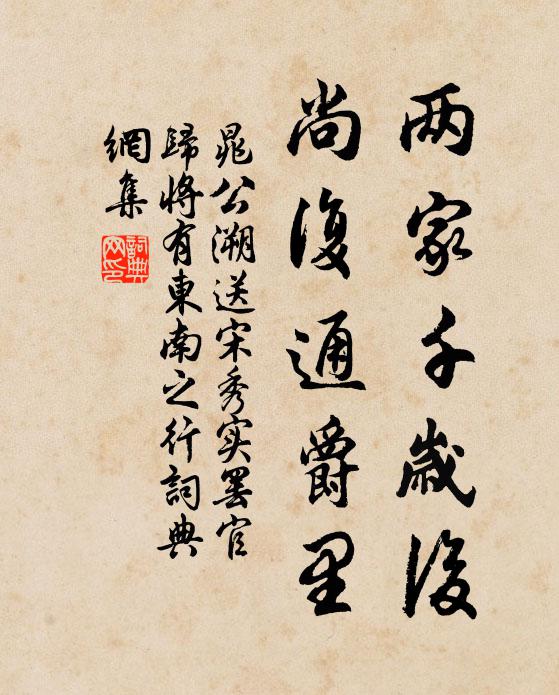 两家千歲後
尚復通爵里
晁公溯送宋秀实罢官
歸將有東南之行詞典
網集
詞典
网印